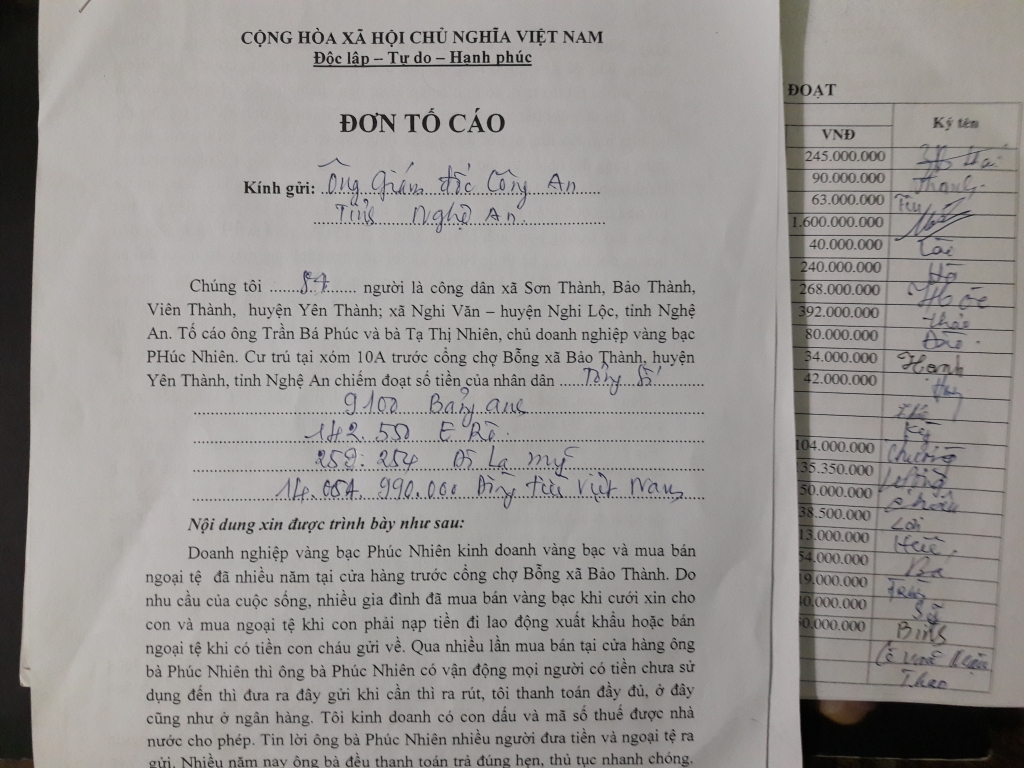 CỘNG HÒA XÃ HỘI CHỦ NGHĨA VIỆT NAM
Độc lập – Tự do – Hạnh phúc
ĐƠN TỐ CÁO
Kính gửi: Ông Giám đốc Công An
Tỉnh Nghệ An
Chúng tôi ........ người là công dân xã Sơn Thành, Bảo Thành,
Viên Thành, huyện Yên Thành; xã Nghi Văn – huyện Nghi Lộc, tỉnh Nghệ
An. Tố cáo ông Trần Bá Phúc và bà Tạ Thị Nhiên, chủ doanh nghiệp vàng bạc
PHúc Nhiên. Cư trú tại xóm 10A trước cổng chợ Bỗng xã Bảo Thành, huyện
Yên Thành, tỉnh Nghệ An chiếm đoạt số tiền của nhân dân ..... Tổng số
9100 Bảng anh
142.550 E Rô
259.254 Đô La mỹ
14.057.990.000 Đồng tiền việt Nam
Nội dung xin được trình bày như sau:
Doanh nghiệp vàng bạc Phúc Nhiên kinh doanh vàng bạc và mua bán
ngoại tệ đã nhiều năm tại cửa hàng trước cổng chợ Bỗng xã Bảo Thành. Do
nhu cầu của cuộc sống, nhiều gia đình đã mua bán vàng bạc khi cưới xin cho
con và mua ngoại tệ khi con phải nạp tiền đi lao động xuất khẩu hoặc bán
ngoại tệ khi có tiền con cháu gửi về. Qua nhiều lần mua bán tại cửa hàng ông
bà Phúc Nhiên thì ông bà Phúc Nhiên có vận động mọi người có tiền chưa sử
dụng đến thì đưa ra đây gửi khi cần thì ra rút, tôi thanh toán đầy đủ, ở đây
cũng như ở ngân hàng. Tôi kinh doanh có con dấu và mã số thuế được nhà
nước cho phép. Tin lời ông bà Phúc Nhiên nhiều người đưa tiền và ngoại tệ ra
gửi. Nhiều năm nay ông bà đều thanh toán trả đúng hẹn, thủ tục nhanh chóng.
ĐOẠT
VNĐ Ký tên
245.000.000
90.000.000 Thanh
63.000.000 Tiu
1.600.000.000
40.000.000 Tài
240.000.000
268.000.000 Hóe
392.000.000 Thảo
80.000.000
34.000.000 Hạnh
42.000.000
Kỳ
104.000.000 Chương
35.350.000
50.000.000
38.500.000 Lợi
13.000.000 Huệ
54.000.000 Ba
19.000.000
40.000.000
50.000.000 Bính
Thao